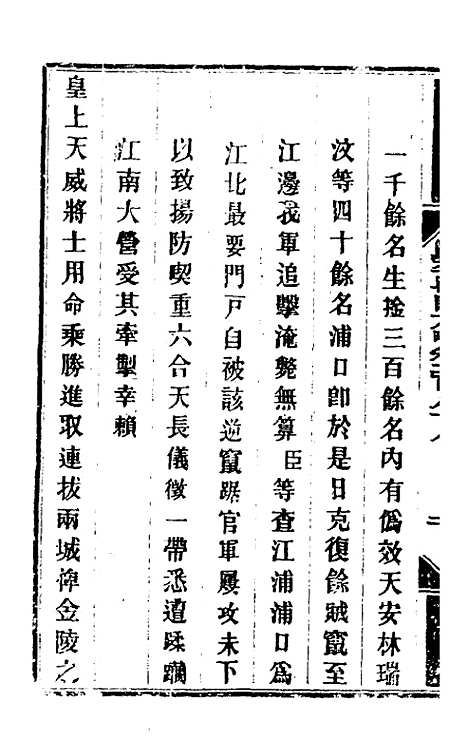 一千餘名生擒三百餘名內有僞效天安林瑞
汶等四十餘名浦口卽於是日克復餘賊竄至
江邊我軍追擊淹斃無算臣等查江浦浦口爲
江北最要門戶自被該逆竄踞官軍屢攻未下
以致揚防喫重六合天長儀徵一帶悉遭蹂躪
江南大營受其牽掣幸賴
皇上天威將士用命乘勝進取連拔兩城俾金陵之